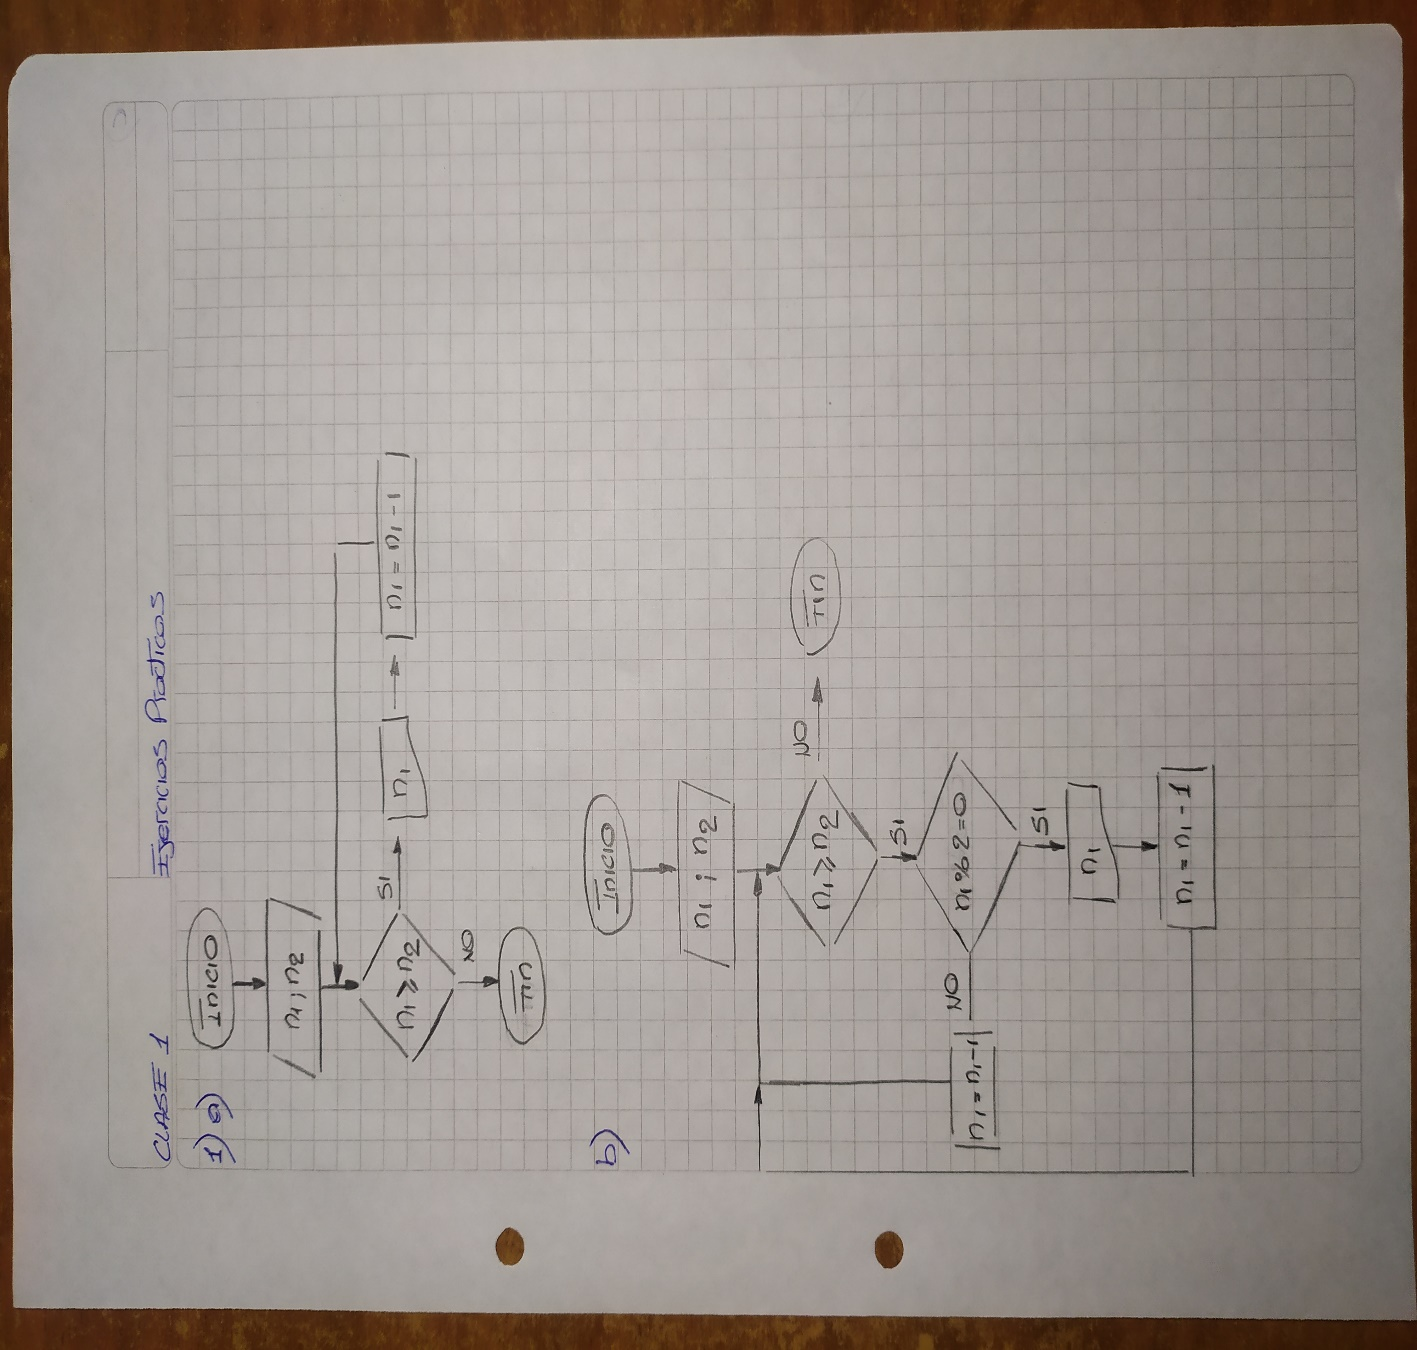 CLASE 1
Ejercicios Prácticos
1) a)
Inicio
n1 ; n2
n1 ≥ n2
SI
n1
n1 = n1 - 1
NO
Fin
b)
Inicio
n1 ; n2
n1 ≥ n2
NO
Fin
SI
n1 % 2 = 0
NO
n1 = n1 - 1
SI
n1
n1 = n1 - 1